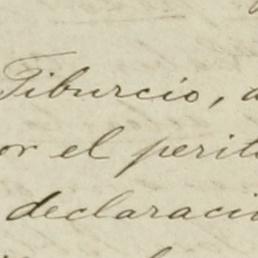 Tiburcio, a
or el perit
declaraci